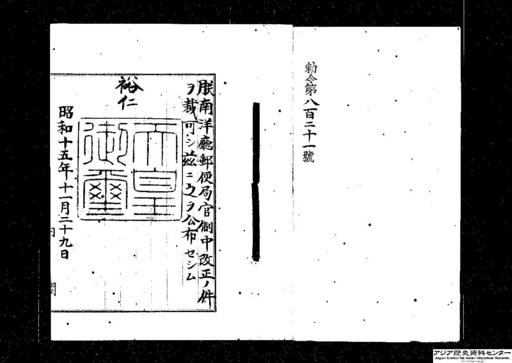 勅令第八百二十一號
朕南洋廳郵便局官制中改正ノ件
ヲ裁可シ茲ニ之ヲ公布セシム
裕仁
天皇
御璽
昭和十五年十一月二十九日
内
閣
アジア歴史資料センター
Japan Center for Asian Historical Records